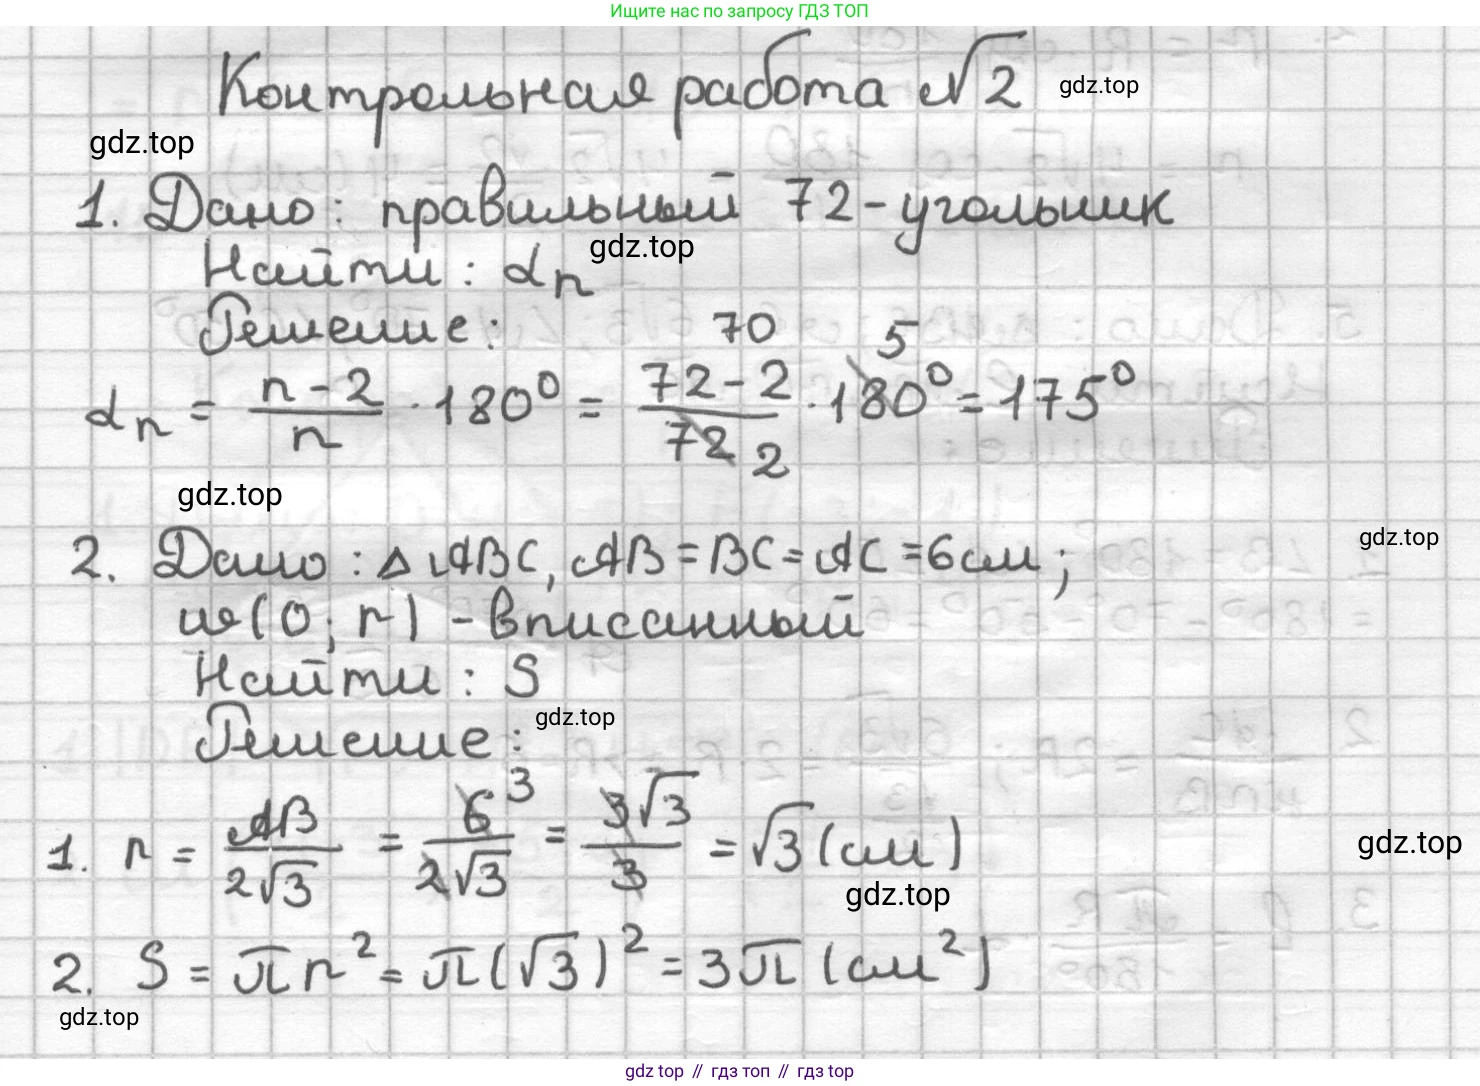 Ищите нас по запросу ГДЗ ТОП
Контрольная работа №2
gdz.top
gdz.top
1. Дано: правильный 72-угольник
gdz.top
Найти: αn
Решение:
αn = (n-2)/n · 180° = (72-2)/72 · 180° = 175°
70 5
2
gdz.top
gdz.top
2. Дано: Δ ABC, AB = BC = AC = 6 см;
ω(O; r) - вписанный
Найти: S
gdz.top
Решение:
1. r = AB/2√3 = 6/2√3 = 3√3/3 = √3 (см)
3
gdz.top
gdz.top
2. S = πr² = π(√3)² = 3π (см²)
gdz.top
gdz top // гдз топ // гдз top